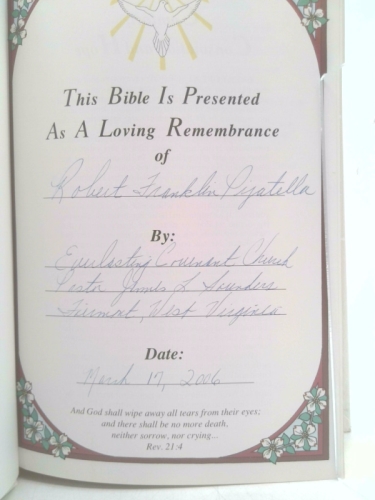 This Bible Is Presented
As A Loving Remembrance
of
Robert Franklin Pyatella
By:
Everlasting Covenant Church
Pastor James L Saunders
Fairmont, West Virginia
Date:
March 17, 2006
And God shall wipe away all tears from their eyes;
and there shall be no more death,
neither sorrow, nor crying...
Rev. 21:4